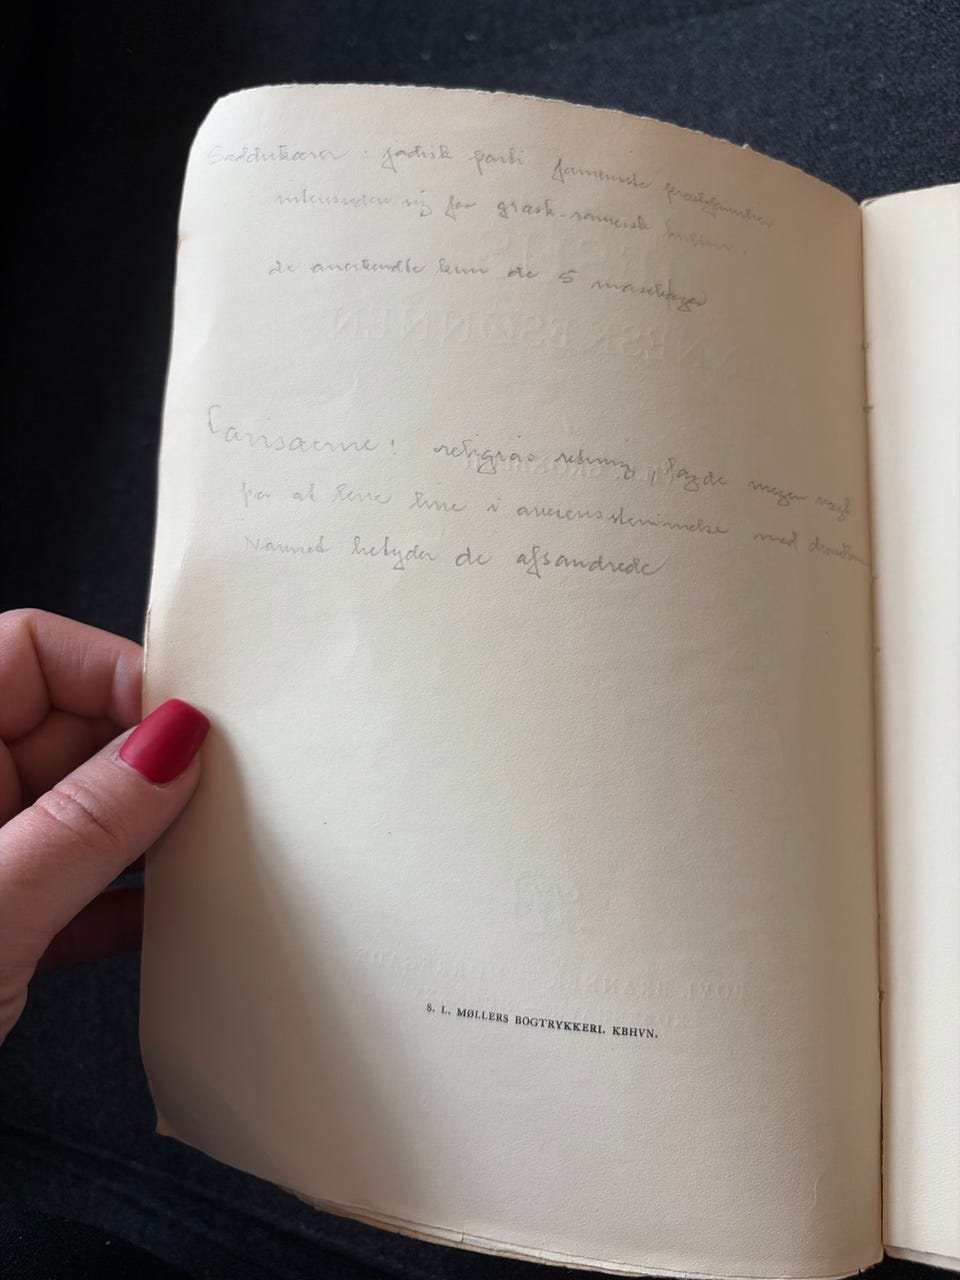 Saddukæer : jødisk parti fornemste præstefamilier
interesserede sig for græsk-romersk kultur.
de anerkendte kun de 5 mosebøger
Farisæerne : religiøs retning, lagde megen vægt
på at leve livet i overensstemmelse med
Navnet betyder de afsondrede
S. L. MØLLERS BOGTRYKKERI. KBHVN.